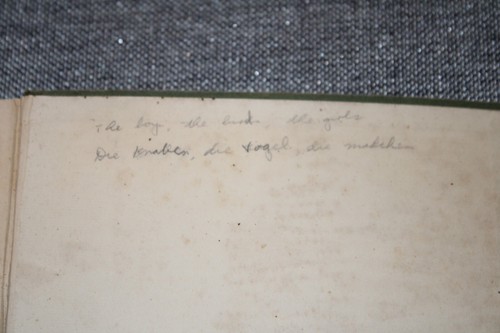 The boy, the birds, the girls
Die Knaben, die Vogel, die madchen